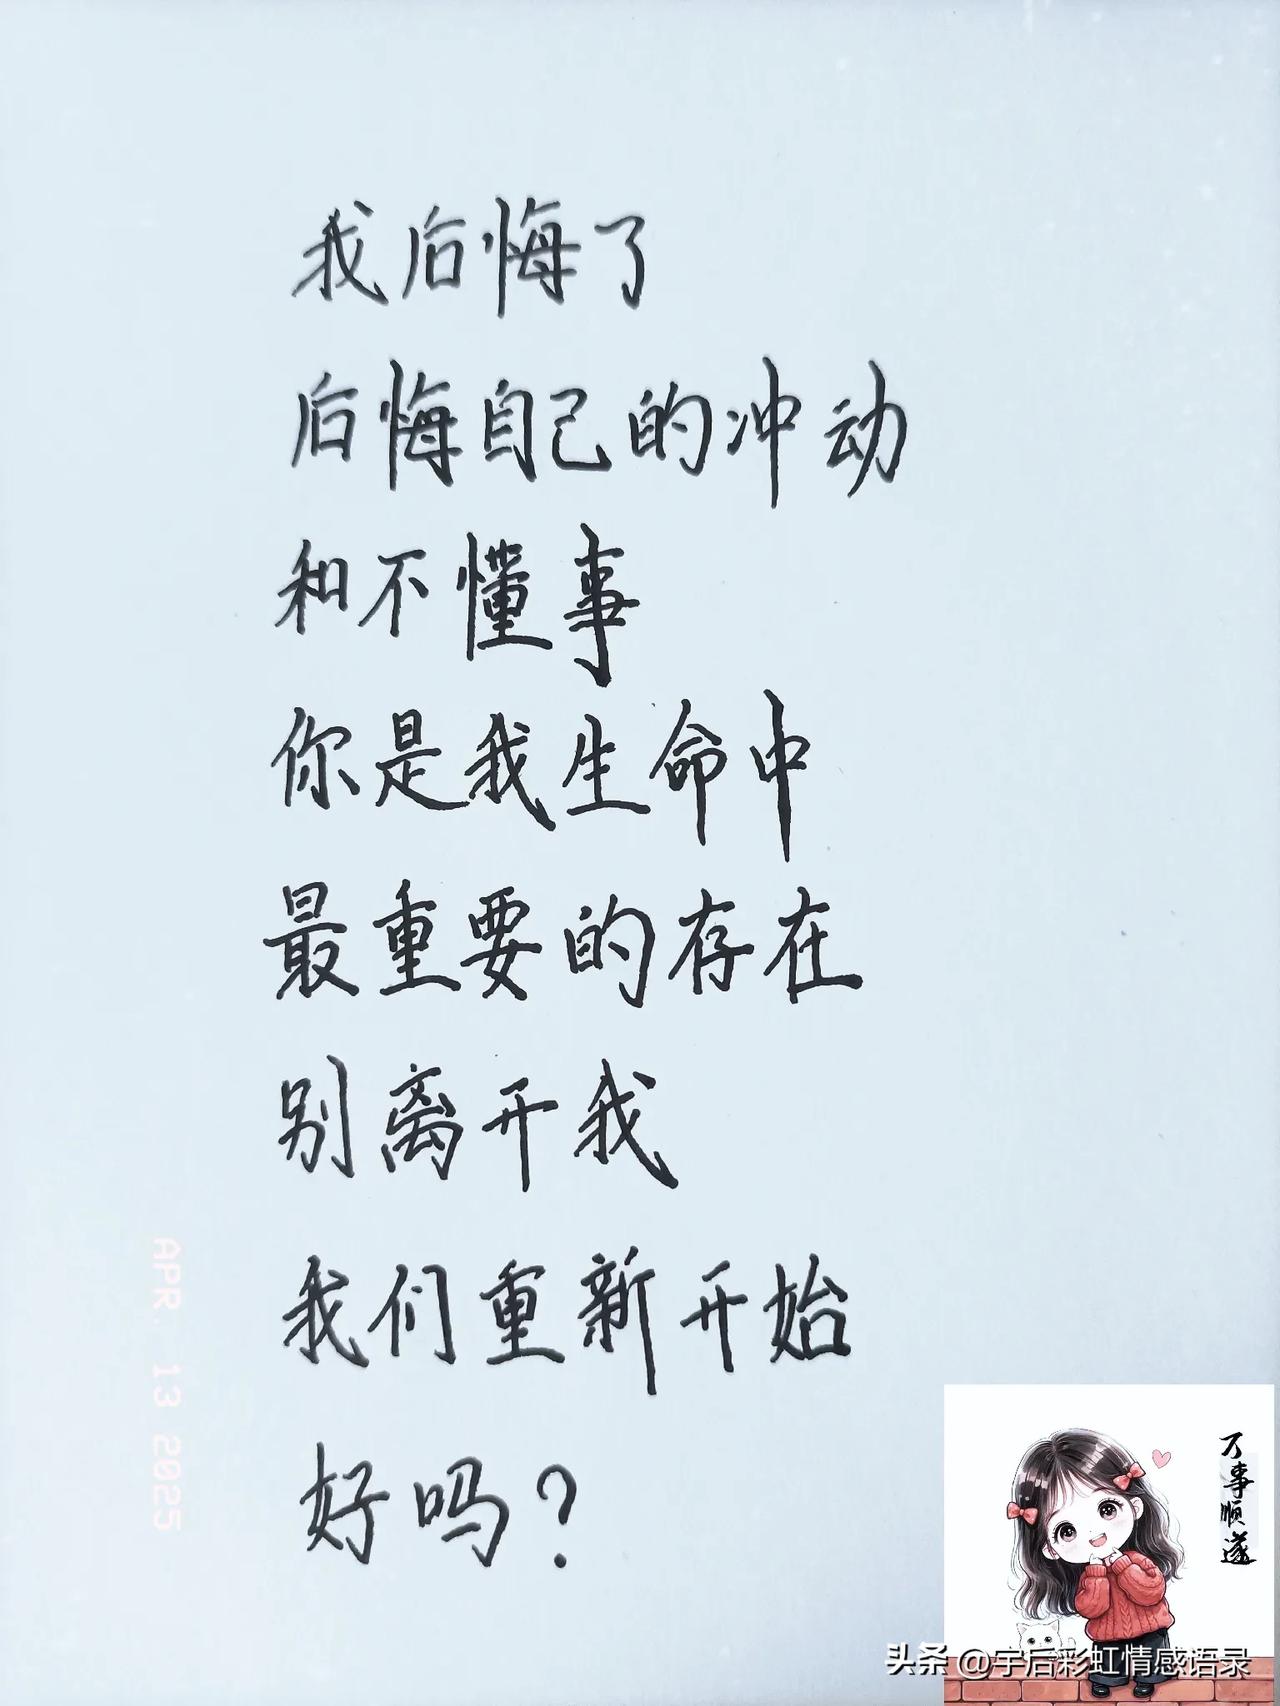 我后悔了
后悔自己的冲动
和不懂事
你是我生命中
最重要的存在
别离开我
我们重新开始
好吗?
APR. 13 2025
万事顺遂
头条 @宇后彩虹情感语录